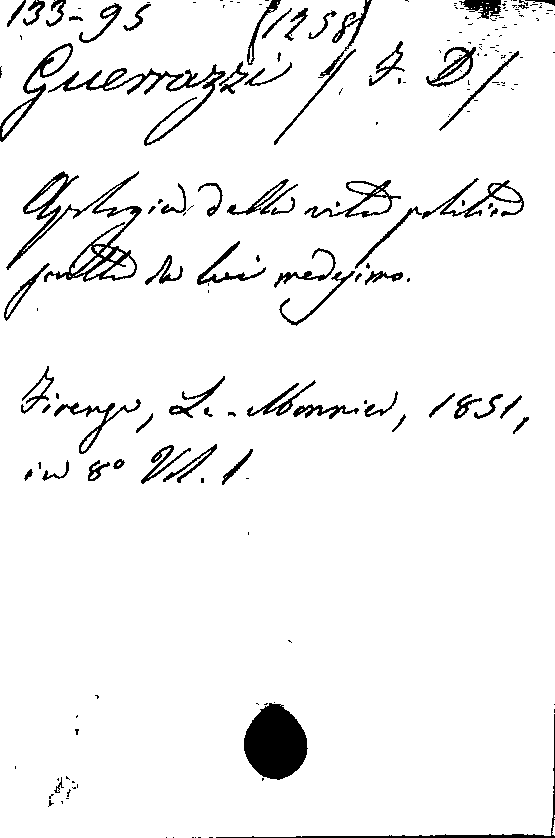 133-95 (1258)
Guerrazzi / F. D/
Apologia della vita politica
scritta da lui medesimo.
Firenze, Le-Monnier, 1851,
in 8° Vol. 1